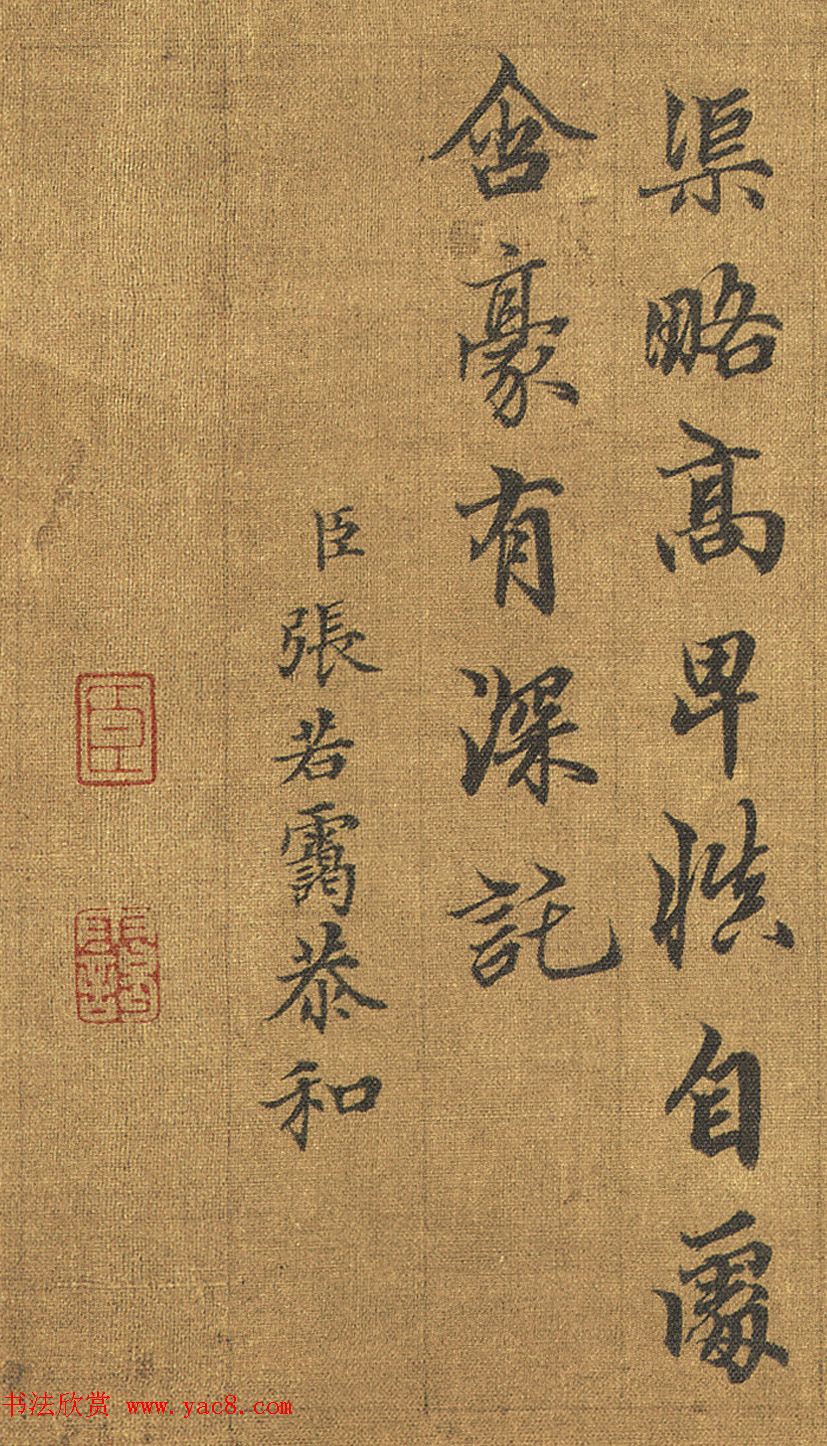 渠略高卑慎自處
含豪有深託
臣張若靄恭和
书法欣赏 www.yac8.com